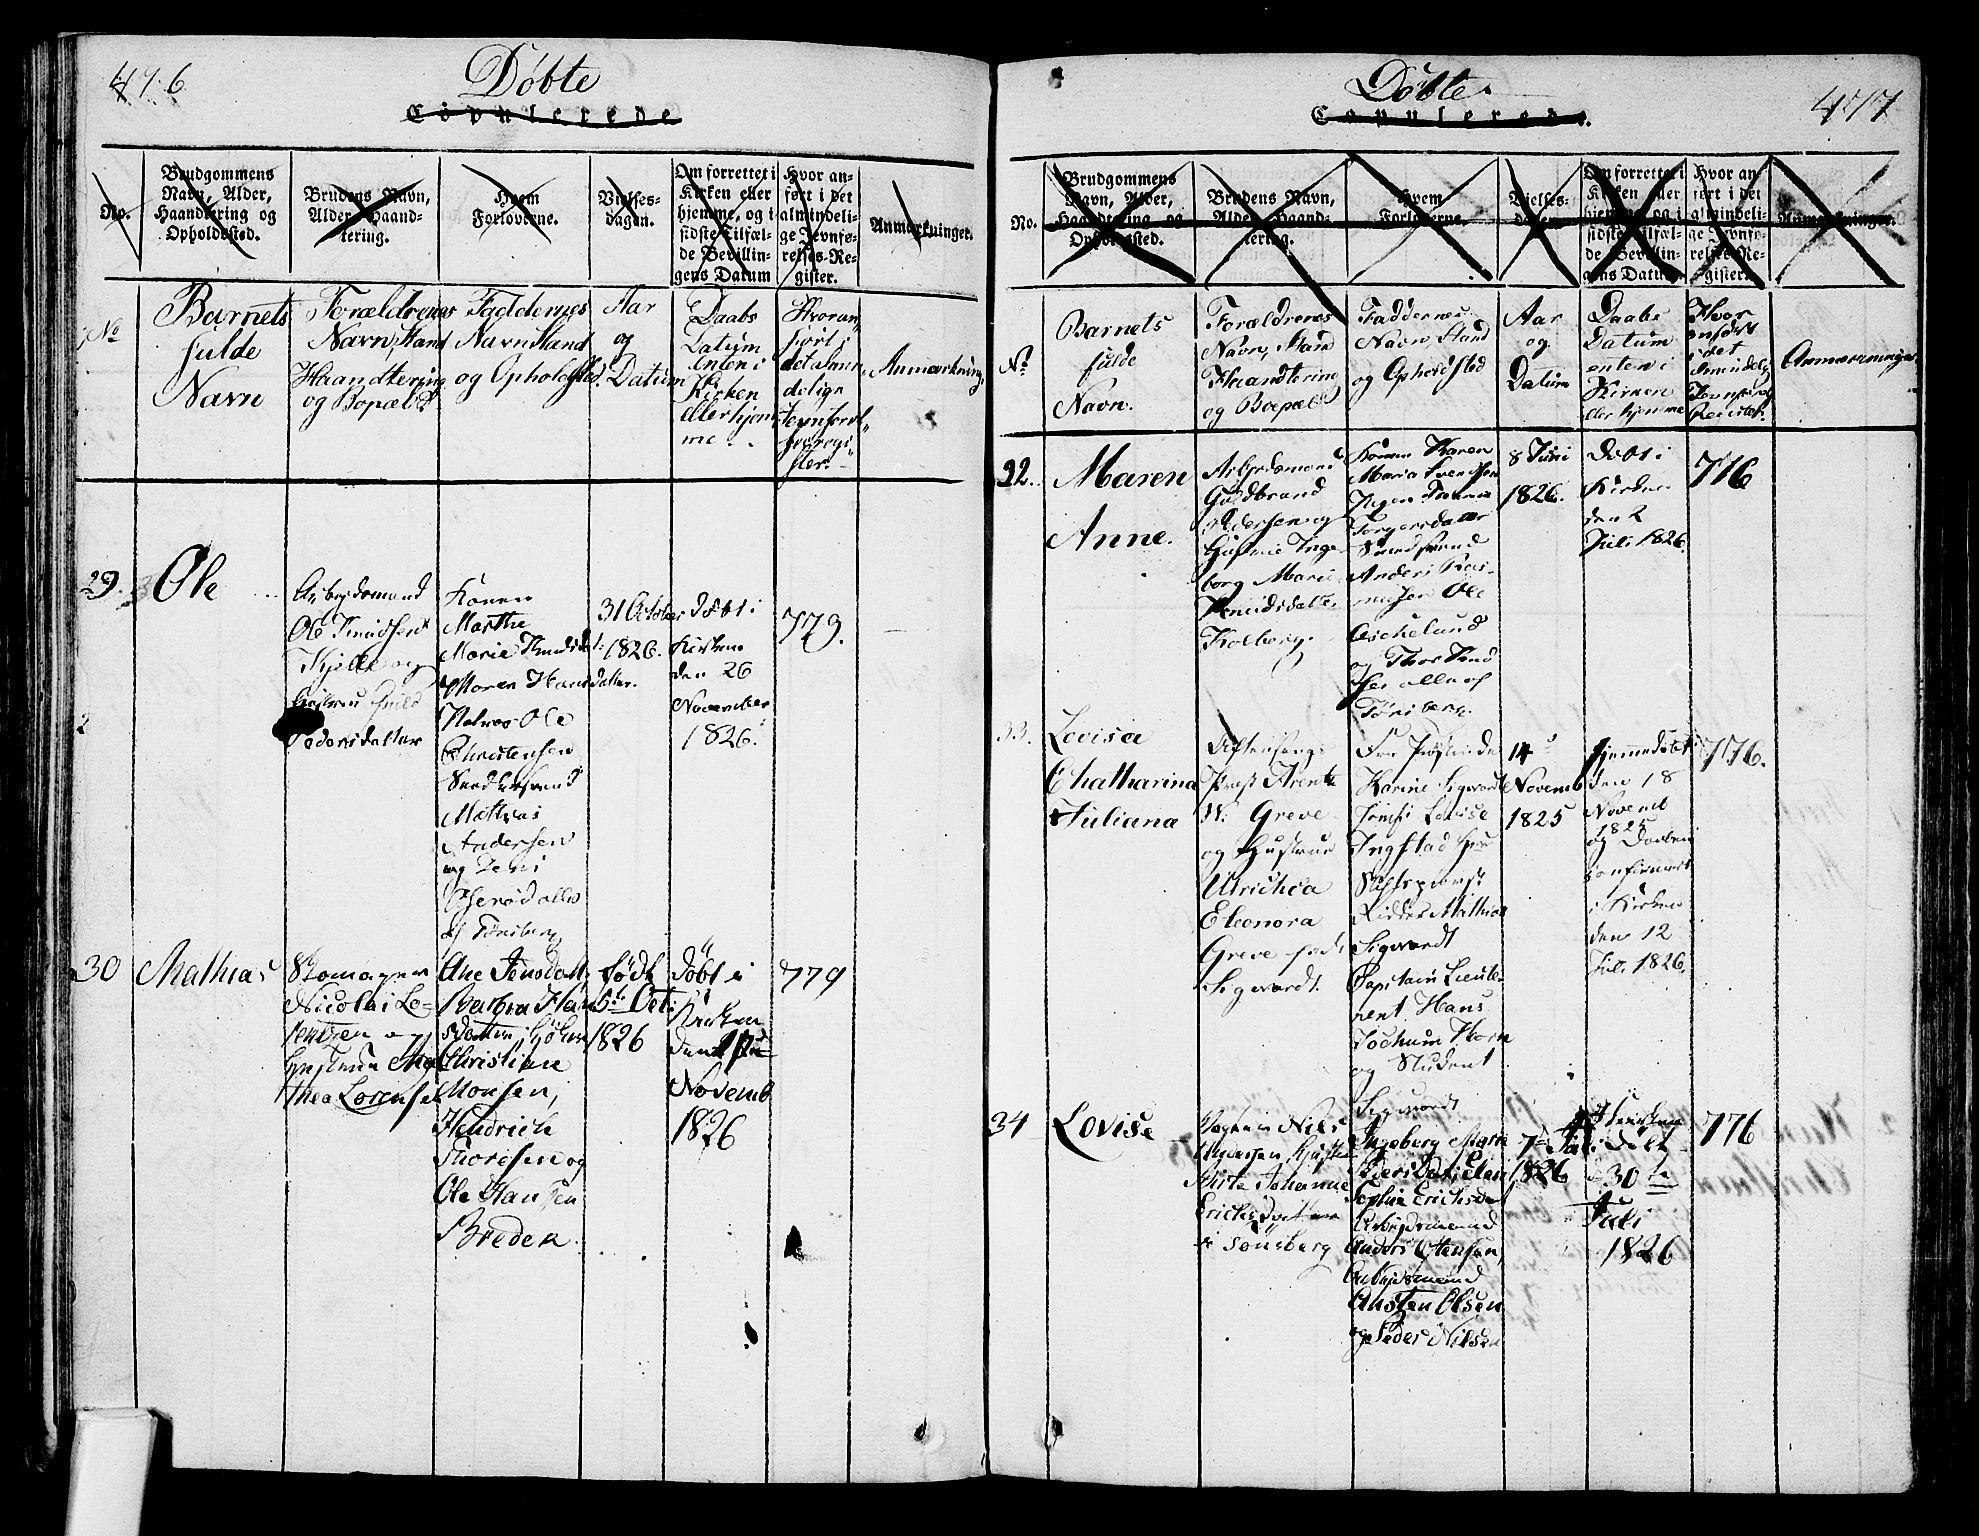 476
Døbte
Copulerede
No.
Brudgommens
Navn, Alder,
Haandtering og
Opholdssted.
Brudens Navn,
Alder, Haand-
tering.
Hvem
Forloverne.
Vielses-
dagen.
Om forrettet i
Kirken eller
hjemme, og i
sidste Tilfæl-
de Bevillin-
gens Datum
Hvor an-
ført i det
almindeli-
ge Jevnfø-
relses-Re-
gister.
Anmærkninger.
No
Barnets
fulde
Navn
Forældrenes
Navn, Stand
Haandtering
og Bopæl
Faddernes
Navn Stand
og Opholdsted.
Aar
og
Datum
Daabs
Datum
enten i
Kirken
eller hjem
me
Hvor an,,
ført i
det almin,,
delige
Jevnførel,,
ster.
Anmærkning.
29.
Ole
Arbejdsmand
Ole Knudsen
Kjelle og
Pedersdatter
Konen
Marthe
Marie Knudsdat:
Maren Hansdatter.
Ole
Christensen
Mathias
Andersen
og
alle
af Tønsberg
31 October
1826.
døbt i
Kirken
den 26
November
1826.
779.
30
Mathias
Skomager
Nicolai Lo-
rentzen og
Hustrue Ma
thea Lorensen
Ane Jensdatt
Barbra Han
sdatter,
Christian
Monsen,
Hendrich
Thoresen og
Ole Hansen
Breden
født
5te Oct:
1826
døbt i
Kirken
den
Novemb
1826
779
Døbte.
477
Copulerede.
No.
Brudgommens
Navn, Alder,
Haandtering og
Opholdssted.
Brudens Navn,
Alder, Haand-
tering.
Hvem
Forloverne.
Vielses-
dagen.
Om forrettet i
Kirken eller
hjemme, og i
sidste Tilfæl-
de Bevillin-
gens Datum
Hvor an-
ført i det
almindeli-
ge Jevnfø-
relses-Re-
gister.
Anmærkninger.
No
Barnets
fulde
Navn.
Forældrenes
Navn, Stand
Haandtering
og Boepæl
Faddernes
Navn Stand
og Opholdsted
Aar
og
Datum
Daabs
Datum
enten i
Kirken
eller hjemme
Hvor
anført
i det
Almindelig
Jevnførelses
Register.
Anmærkninger
32.
Maren
Anne.
Arbejdsmand
Guldbrand
Pedersen og
Hustrue Inge
borg Marie
Knudsdatter
Kolberg.
Konen Karen
Maria Svendsen
Torgersdatter
Anders Ras-
musen Ole
Aschelund
og Thor Knud
sen alle af
Tønsberg.
8 Juni
1826.
Døbt i
Kirken
den 2
Juli 1826.
776
33.
Lovisa
Chatharina
Juliana
Aftensangs
Præst Arentz
W. Greve
og Hustrue
Ulricha
Eleonora
Greve født
Sigvardt.
Fru Provstinde
Karine Sigvardt
Jomfr Lovise
Ingstad Hr
Stiftsprovst
Ridder Mathias
Sigvardt
Capitain Lieute-
nent Hans
Jochum Horn
og Student
Sigvardt
14
Novemb
1825
hjemmedøbt
den 18
Novemb
1825
og Daaben
confirmert
i Kirken
den 12
Juli 1826.
776.
34
Lovise
Nils
Andersen, Hustru
Johanne
Erichsdatter
i Tønsberg
Ingeborg Marie
Pedersdat: Elen
Sophie Erichsdat
Arbejdsmand
Anders Stensen,
Arbejdsmand
Austen Olsen
og Peder Nilsen
7de Juli
1826
i Kirken
døbt
30te
Juli
1826
776